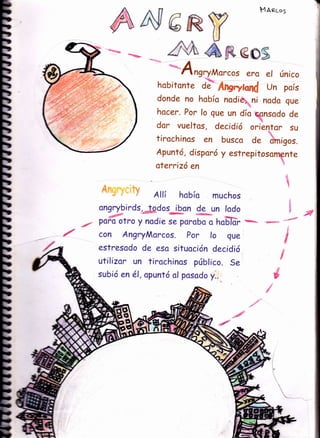 MARCOS
ANGRY
MARCOS
AngryMarcos era el único
habitante de Angryland Un país
donde no había nadie, ni nada que
hacer. Por lo que un día cansado de
dar vueltas, decidió orientar su
tirachinas en busca de amigos.
Apuntó, disparó y estrepitosamente
aterrizó en
Angrycity Allí había muchos
angrybirds, todos iban de un lado
para otro y nadie se paraba a hablar
con AngryMarcos. Por lo que
estresado de esa situación decidió
utilizar un tirachinas público. Se
subió en él, apuntó al pasado y..